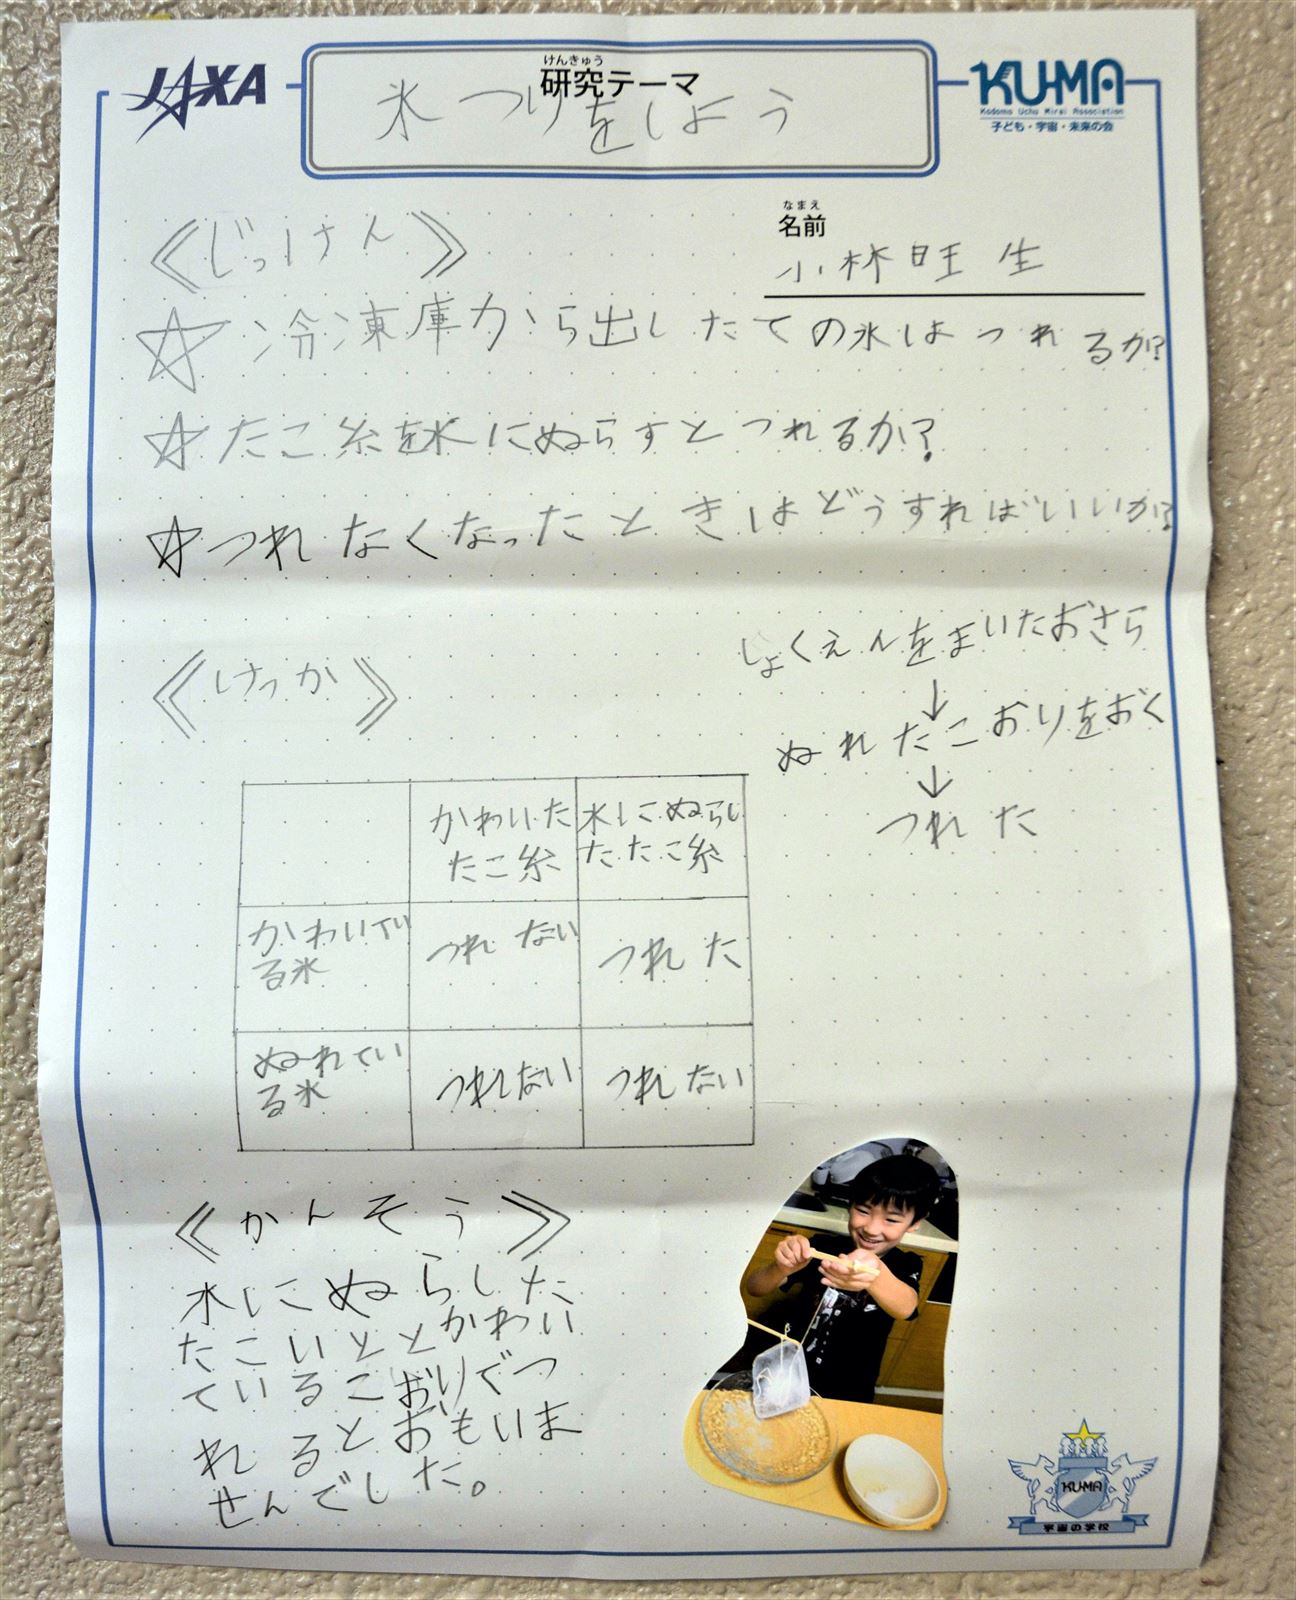 JAXA
けんきゅう
研究テーマ
氷つりをしよう
KU-MA
Kodomo Uchu Mirai Association
子ども・宇宙・未来の会
なまえ
名前
小林旺生
《じっけん》
☆冷凍庫から出したての氷はつれるか?
☆たこ糸を水にぬらすとつれるか?
☆つれなくなったときはどうすればいいか?
《けっか》
しょくえんをまいたおさら
↓
ぬれたこおりをおく
↓
つれた
かわいた
たこ糸
水にぬらし
たたこ糸
かわいてい
る氷
つれない
つれた
ぬれてい
る氷
つれない
つれない
《かんそう》
水にぬらした
たこいととかわい
ているこおりでつ
れるとおもいま
せんでした。
KU-MA
宇宙の学校